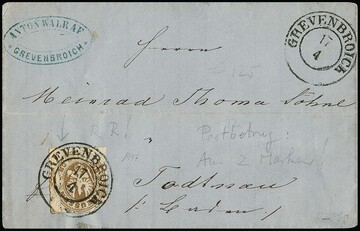 ANTON WALRAF
GREVENBROICH
GREVENBROICH
17
4
Herrn
Meinrad Thoma Söhne
R.R!
Postbetrug:
Aus 2 Marken!
GREVENBROICH
17
4
Todtnau
/: Baden /: